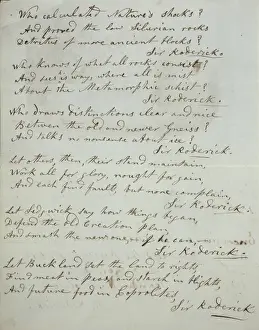 Who calculated Nature's shocks?
And proved the low Silurian rocks
Detritus of more ancient blocks?
Sir Roderick.
Who knows of what all rocks consist?
And sees his way, where all is mist
About the Metamorphic schist?
Sir Roderick.
Who draws distinctions clear and nice
Between the old and newer Gneiss?
And talks no nonsense about ice?
Sir Roderick.
Let others, then, their stand maintain,
Work all for glory, nought for gain,
And each find faults, but none complain,
Sir Roderick.
Let Sedgwick say how things began,
Defend the old Creation plan,
And smash the new one, if he can,
Sir Roderick.
Let Buckland set the land to rights,
Find meat in peas, and starch in blights,
And future food in Coprolites,
Sir Roderick